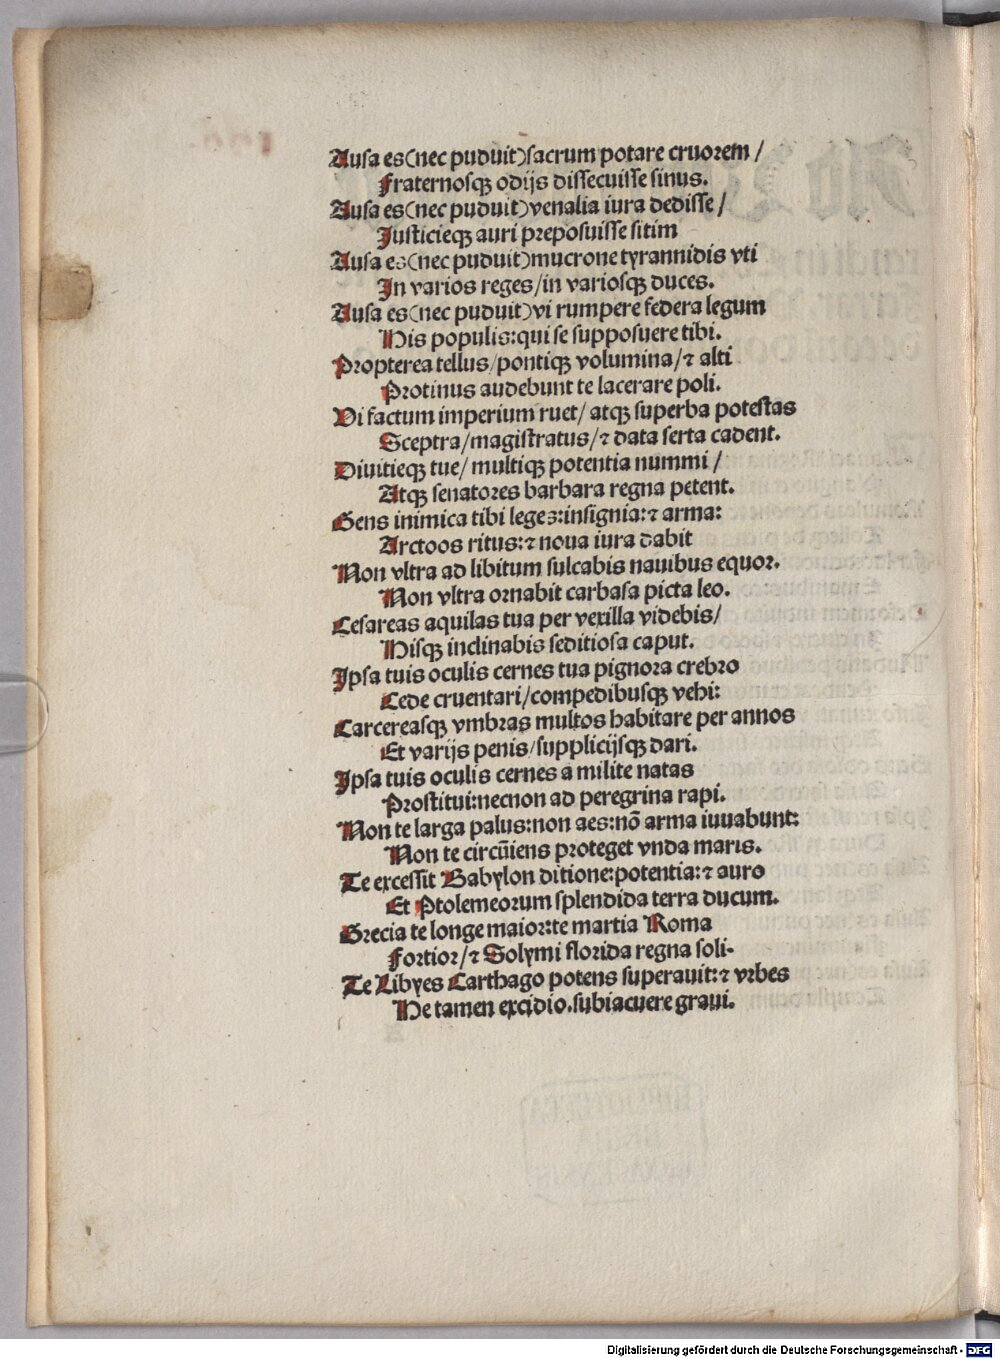 Ausa es(nec puduit)sacrum potare cruorem /
Fraternosqꝫ odijs dissecuisse sinus.
Ausa es(nec puduit)venalia iura dedisse /
Iusticieqꝫ auri preposuisse sitim
Ausa es(nec puduit)mucrone tyrannidis vti
In varios reges/in variosqꝫ duces.
Ausa es(nec puduit)vi rumpere federa legum
His populis:qui se supposuere tibi.
Propterea tellus/pontiqꝫ volumina/⁊ alti
Protinus audebunt te lacerare poli.
Vi factum imperium ruet/ atqꝫ superba potestas
Sceptra/magistratus/⁊ data serta cadent.
Diuitieqꝫ tue/ multiqꝫ potentia nummi /
Atqꝫ senatores barbara regna petent.
Gens inimica tibi leges:insignia:⁊ arma:
Arctoos ritus:⁊ noua iura dabit
Non vltra ad libitum sulcabis nauibus equor.
Non vltra ornabit carbasa picta leo.
Cesareas aquilas tua per vexilla videbis/
Hisqꝫ inclinabis seditiosa caput.
Ipsa tuis oculis cernes tua pignora crebro
Cede cruentari/compedibusqꝫ vehi:
Carcereasqꝫ vmbras multos habitare per annos
Et varijs penis/supplicijsqꝫ dari.
Ipsa tuis oculis cernes a milite natas
Prostitui:necnon ad peregrina rapi.
Non te larga palus:non aes:nō arma iuuabunt:
Non te circūiens proteget vnda maris.
Te excessit Babylon ditione:potentia:⁊ auro
Et Ptolemeorum splendida terra ducum.
Grecia te longe maior:te martia Roma
Fortior/⁊ Solymi florida regna soli.
Te Libyes Carthago potens superauit:⁊ vrbes
He tamen excidio.subiacuere graui.
Digitalisierung gefördert durch die Deutsche Forschungsgemeinschaft - DFG